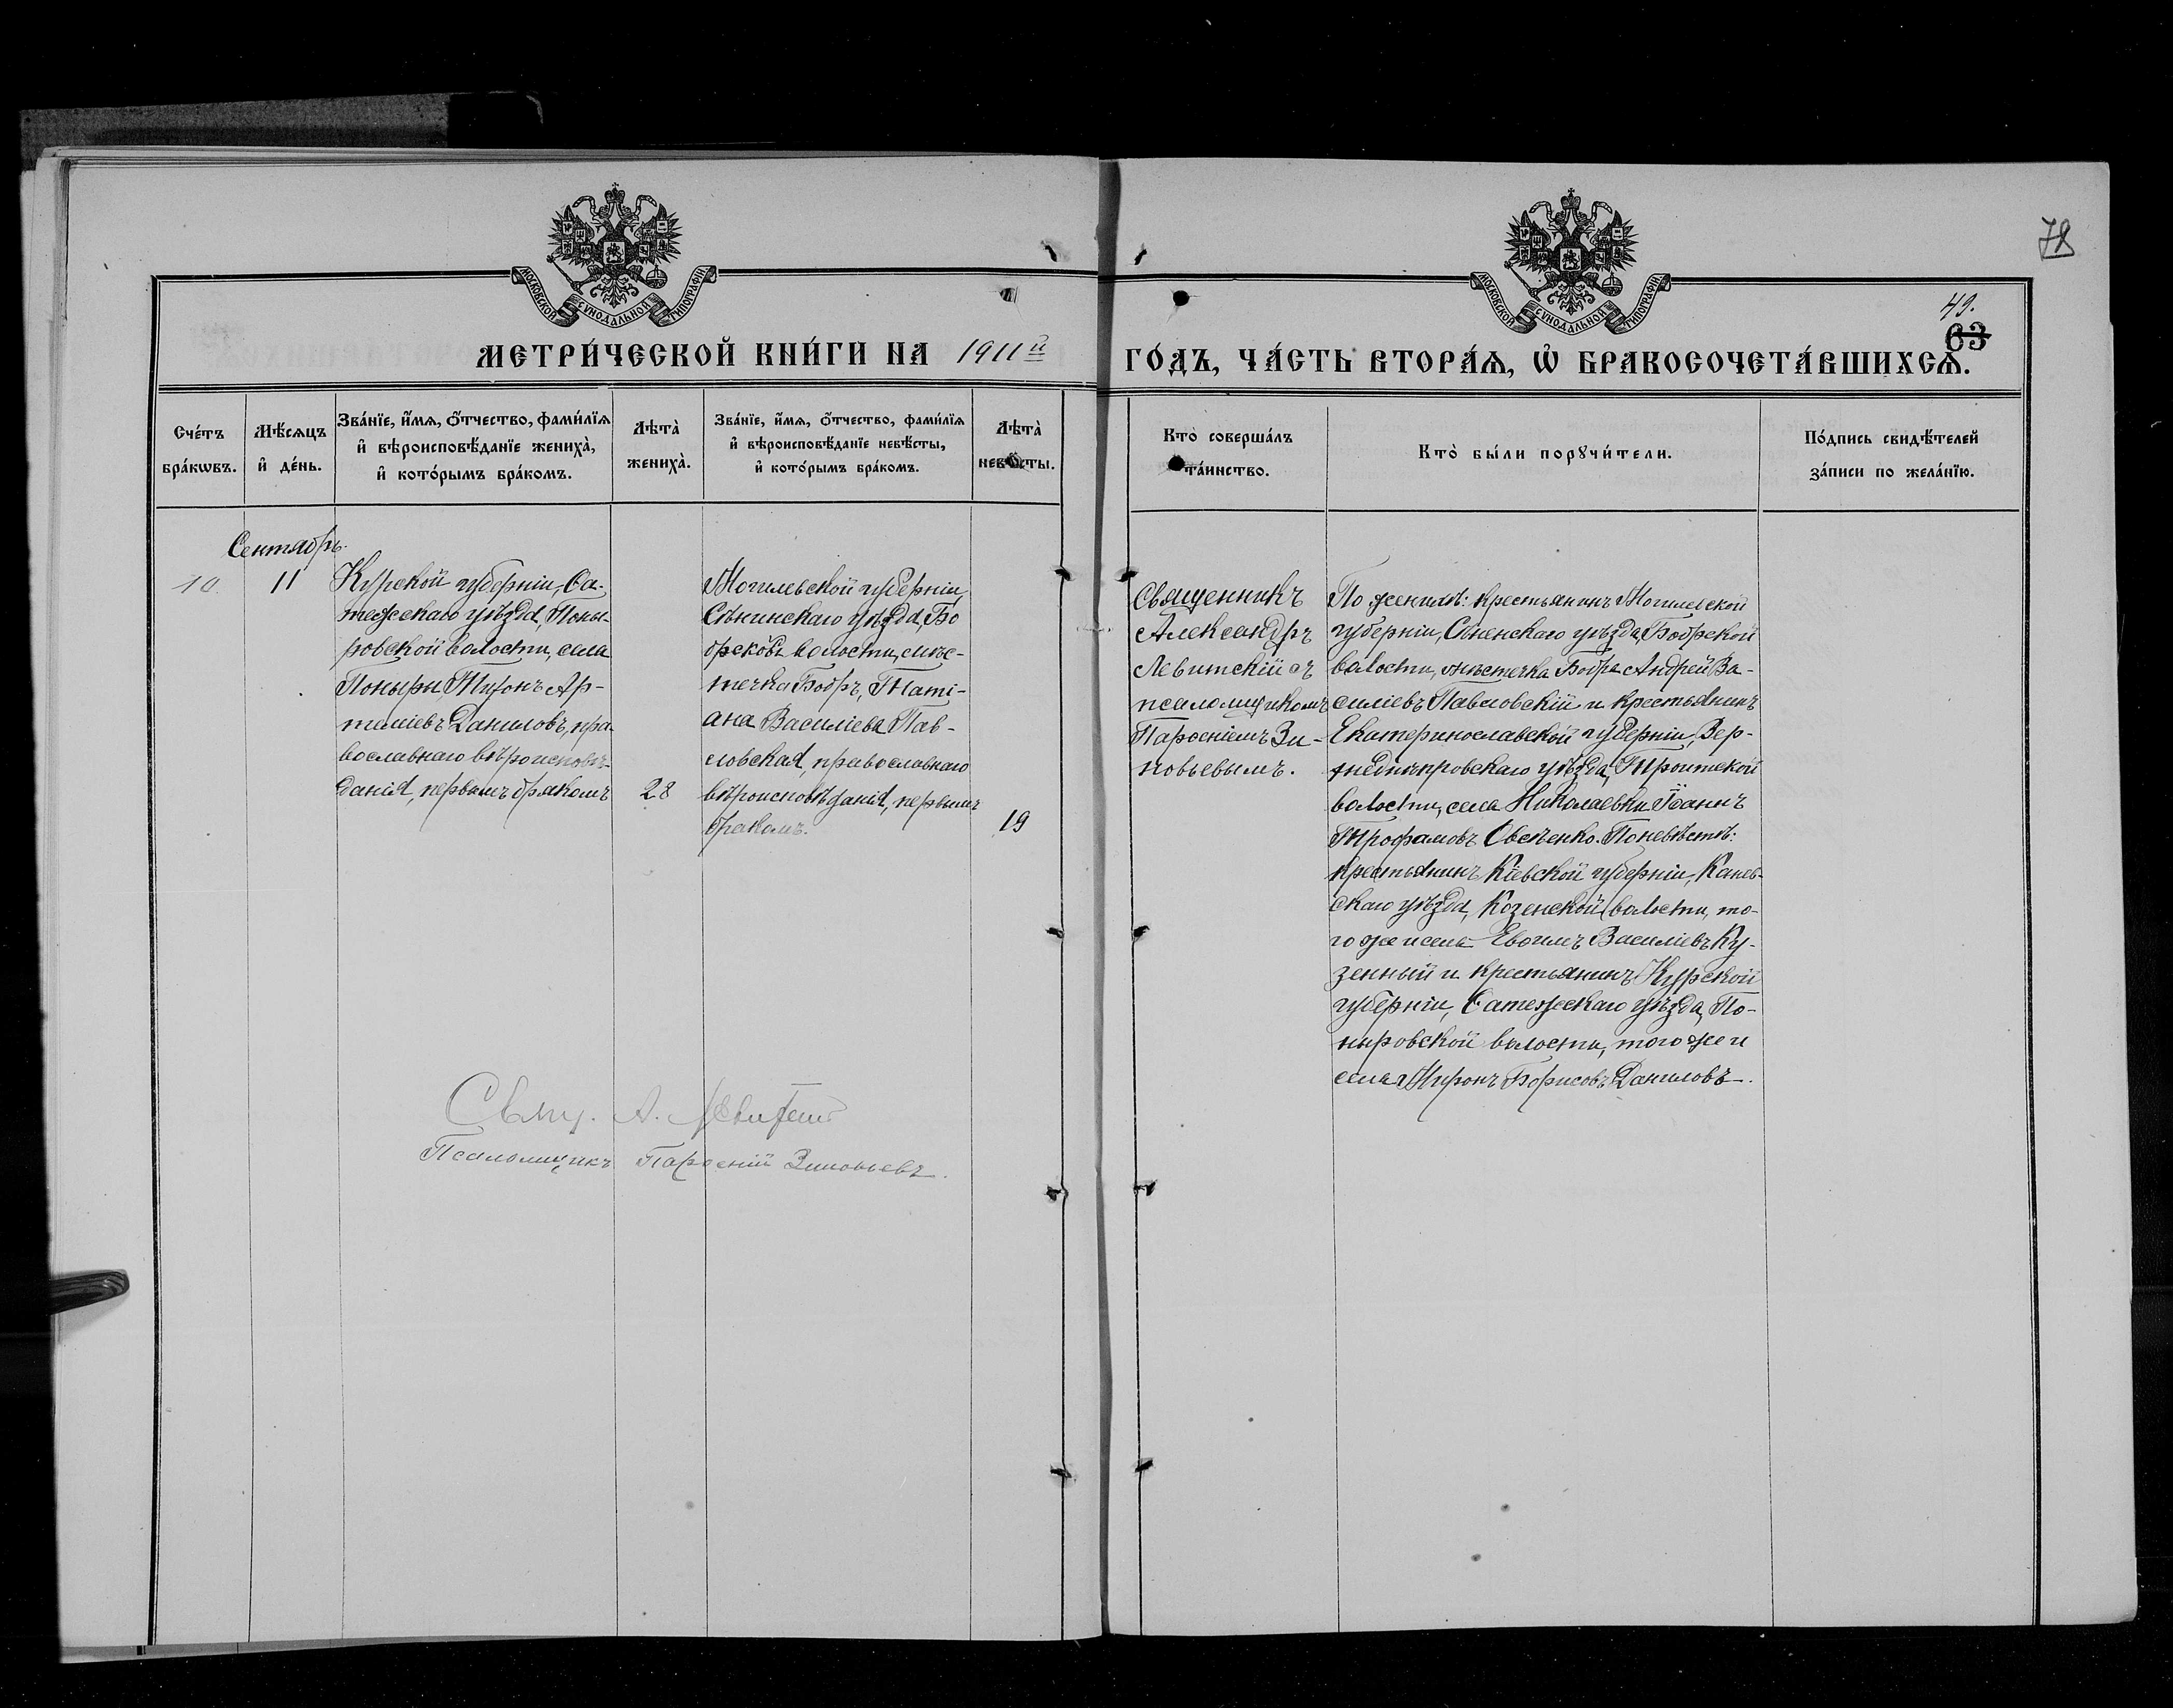 78
МОСКОВСКОЙ СУНОДАЛЬНОЙ ТИПОГРАФІИ
МОСКОВСКОЙ СУНОДАЛЬНОЙ ТИПОГРАФІИ
49.
63
МЕТРИ́ЧЕСКОЙ КНИ́ГИ НА 1911й
ГО́ДЪ, ЧА́СТЬ ВТОРА́Ѧ, Ѽ БРАКОСОЧЕТА́ВШИХСѦ.
Сче́тъ бра́кѡвъ.
Мѣ́сѧцъ и҆ де́нь.
Зва́нїе, и҆́мѧ, ѻ҆́тчество, фами́лїѧ и҆ вѣроисповѣ́данїе жениха̀, и҆ кото́рымъ бра́комъ.
Лѣта̀ жениха̀.
Зва́нїе, и҆́мѧ, ѻ҆́тчество, фами́лїѧ и҆ вѣроисповѣ́данїе невѣ́сты, и҆ кото́рымъ бра́комъ.
Лѣта̀ невѣ́сты.
Кто̀ соверша́лъ та́инство.
Кто̀ бы́ли порꙋчи́тели.
По́дпись свидѣ́телей за́писи по жела́нїю.
Сентябрь.
10.
11
Курской губерніи, Фа-
тежскаго уѣзда, Поны-
ровской волости, села
Поныри Тихонъ Ар-
теміевъ Даниловъ, пра
вославнаго вѣроисповѣ-
данія, первымъ бракомъ
28
Могилевской губерніи,
Сѣннинскаго уѣзда, Бо
брской волости, мѣс-
течка Бобръ, Таті-
ана Василіева Пав-
ловская, православнаго
вѣроисповѣданія, первымъ
бракомъ.
19
Священникъ
Александръ
Левитскій съ
псаломщикомъ
Парѳеніемъ Зи-
новьевымъ.
По женихѣ: крестьянинъ Могилевской
губерніи, Сѣненскаго уѣзда, Бобрской
волости, мѣстечка Бобра Андрей Ва-
силіевъ Павловскій и крестьянинъ
Екатеринославской губерніи, Вер-
хнеднѣпровскаго уѣзда, Троитской
волости, села Николаевки Іоаннъ
Трофимовъ Овсѣенко. По невѣстѣ:
крестьянинъ Кіевской губерніи, Канев-
скаго уѣзда, Козенской волости, то-
го же и села Евѳимъ Василіевъ Ку-
зенный и крестьянинъ Курской
губерніи, Фатежскаго уѣзда, По-
ныровской волости, того же и
села Миронъ Борисовъ Даниловъ.
Свящ. А. Левитскій
Псаломщикъ Парѳеній Зиновьевъ.